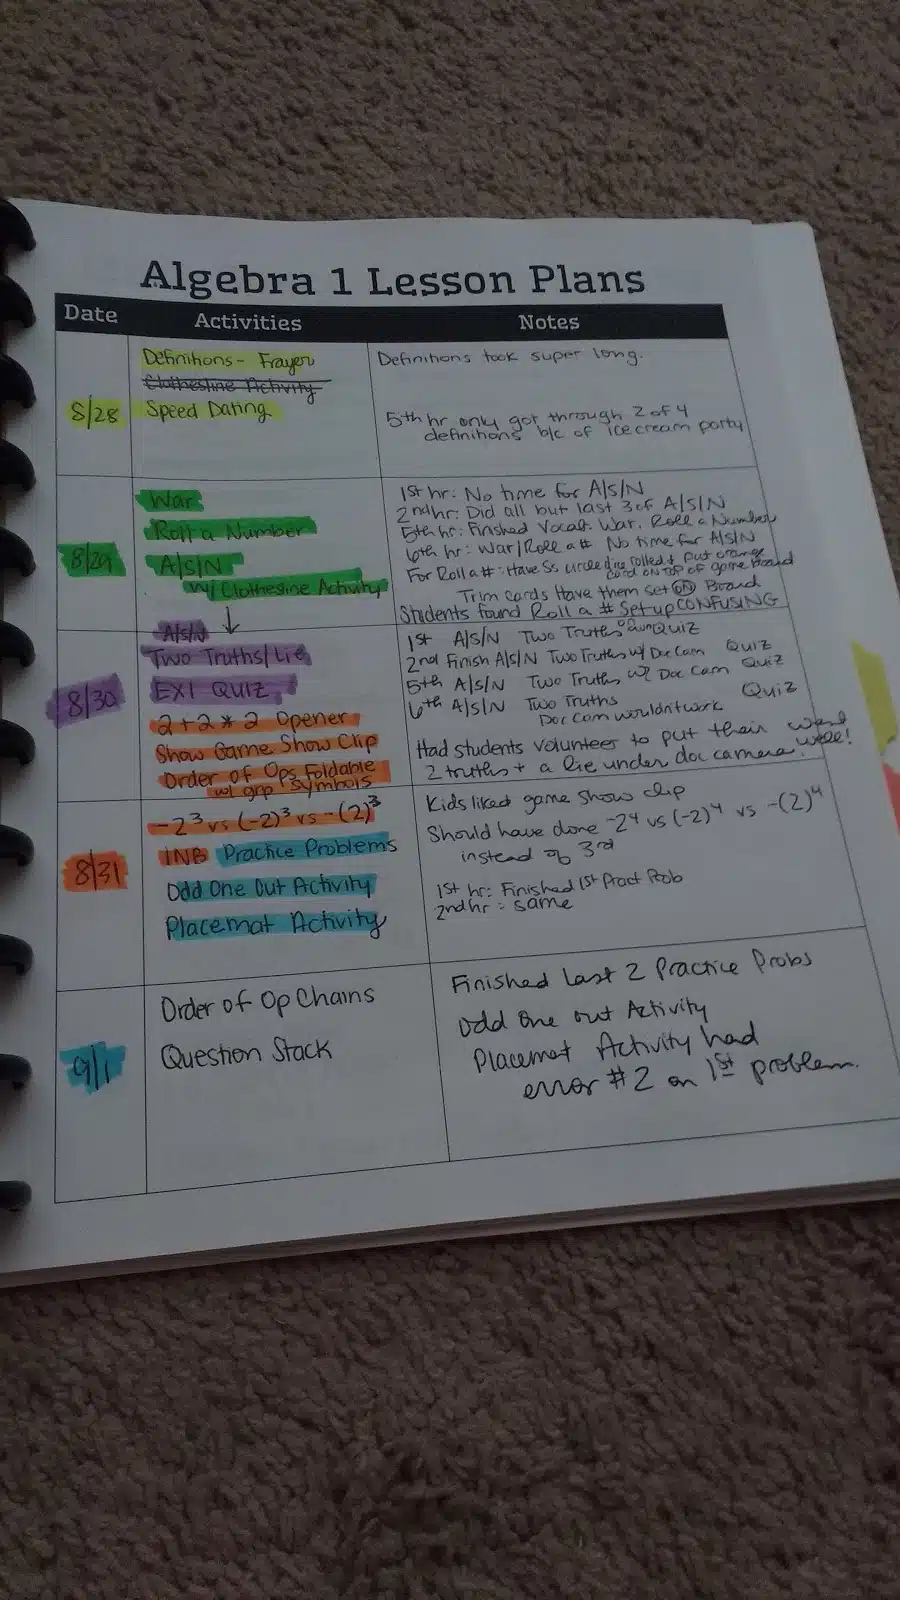 Algebra 1 Lesson Plans
Date Activities Notes
8/28
Definitions - Frayer
Clothesline Activity
Speed Dating
Definitions took super long.
5th hr only got through 2 of 4
definitions b/c of ice cream party
8/29
War
Roll a Number
A/S/N
w/ Clothesline Activity
1st hr: No time for A/S/N
2nd hr: Did all but last 3 of A/S/N
5th hr: Finished Vocab. War, Roll a Number
6th hr: War/Roll a # No time for A/S/N
For Roll a #: Have Ss circle die rolled & put orange
card ON TOP of game Board
Trim cards Have them set ON Board
Students found Roll a # Set up CONFUSING
8/30
A/S/N
Two Truths/Lie
EX1 QUIZ
2+2*2 Opener
Show Game Show Clip
Order of Ops Foldable
w/ grp symbols
1st A/S/N Two Truths QUIZ
2nd Finish A/S/N Two Truths w/ Doc Cam Quiz
5th A/S/N Two Truths w/ Doc Cam Quiz
6th A/S/N Two Truths
Doc Cam wouldn't work Quiz
Had students volunteer to put their
2 truths + a lie under doc camera. went well!
8/31
-2³ vs (-2)³ vs -(2)³
INB Practice Problems
Odd One Out Activity
Placemat Activity
Kids liked game show clip
Should have done -2⁴ vs (-2)⁴ vs -(2)⁴
instead of 3rd
1st hr: Finished 1st Pract Prob
2nd hr: same
9/1
Order of Op Chains
Question Stack
Finished last 2 Practice Probs
Odd One out Activity
Placemat Activity had
error #2 on 1st problem.